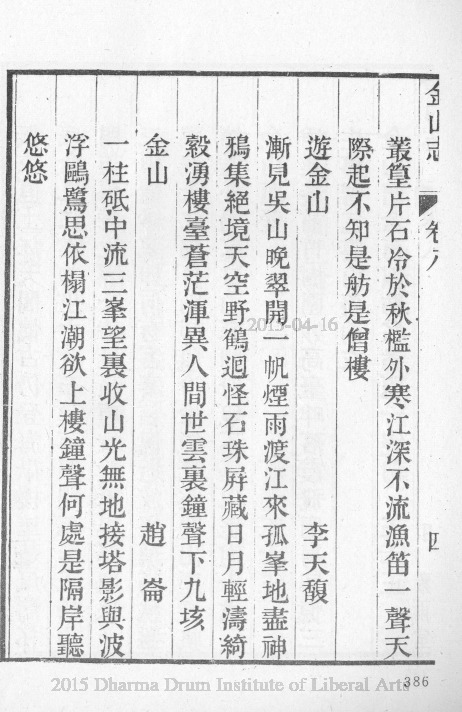 金山志
卷八
四
叢篁片石冷於秋檻外寒江深不流漁笛一聲天
際起不知是舫是僧樓
遊金山 李天馥
漸見吳山晚翠開一帆煙雨渡江來孤峯地盡神
鴉集絕境天空野鶴迴怪石珠屛藏日月輕濤綺
縠湧樓臺蒼茫渾異人間世雲裏鐘聲下九垓
金山 趙崙
一柱砥中流三峯望裏收山光無地接塔影與波
浮鷗鷺思依榻江潮欲上樓鐘聲何處是隔岸聽
悠悠
2015-04-16
386
2015 Dharma Drum Institute of Liberal Arts